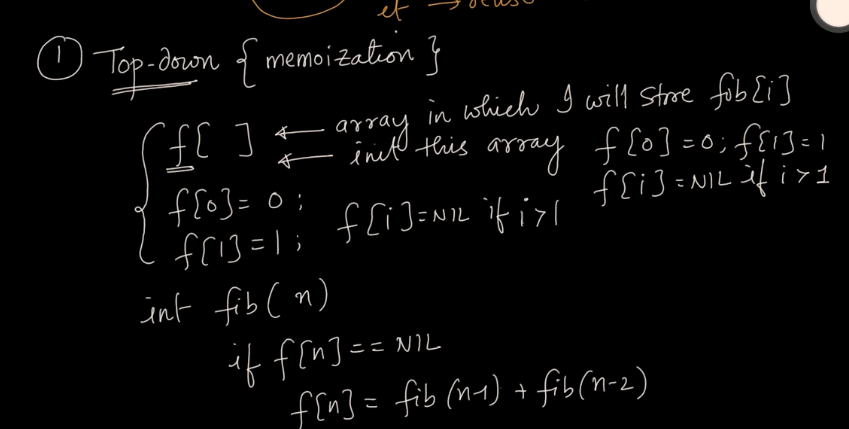 et →
① Top-down { memoization }
f[ ] ← array in which I will store fib[i]
← init this array f[0]=0; f[1]=1
f[i]=NIL if i>1
f[0]=0;
f[1]=1; f[i]=NIL if i>1
int fib(n)
if f[n]==NIL
f[n] = fib(n-1) + fib(n-2)